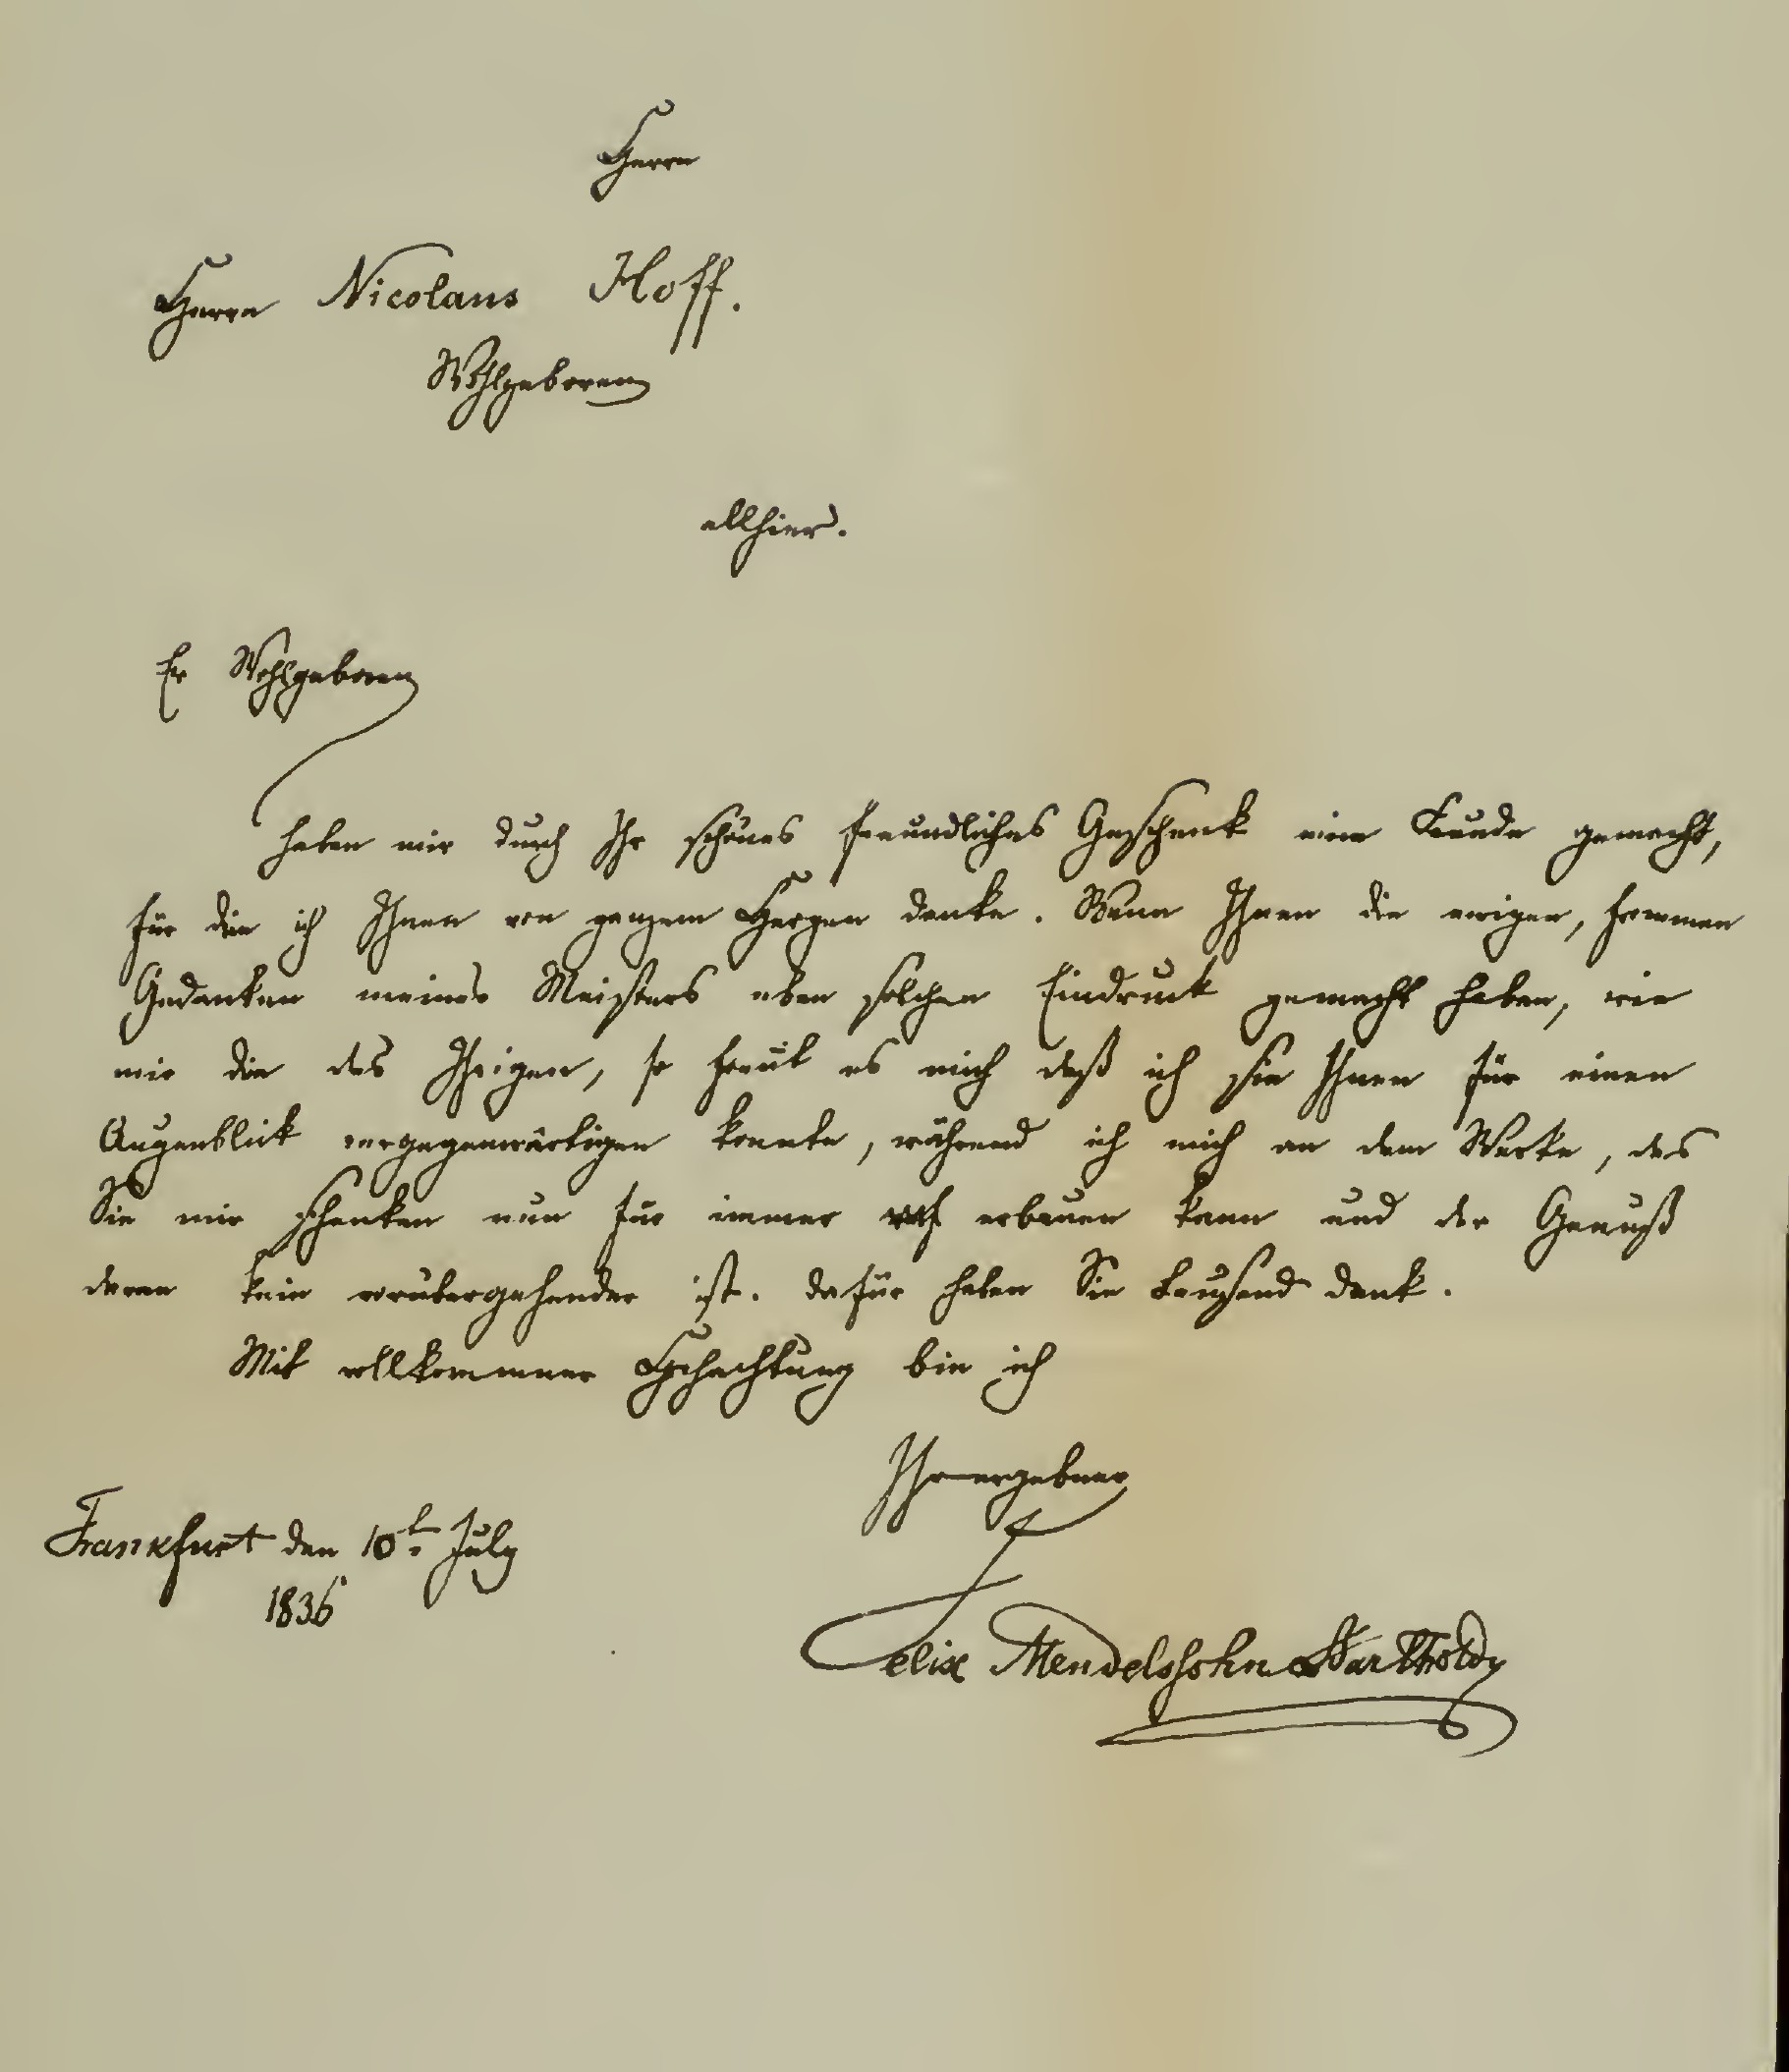 Herrn
Herrn Nicolaus Hoff.
Wohlgeboren
allhier.
Ew Wohlgeboren
haben mir durch Ihr schönes freundliches Geschenk eine Freude gemacht,
für die ich Ihnen von ganzem Herzen danke. Wenn Ihnen die ewigen, frommen
Gedanken meines Meisters eben solchen Eindruck gemacht haben, wie
mir die des Ihrigen, so freut es mich daß ich sie Ihnen für einen
Augenblick vergegenwärtigen konnte, während ich mich an dem Werke, das
Sie mir schenken nun für immer erbauen kann und der Genuß
daran kein vorübergehender ist. dafür haben Sie tausend dank.
Mit vollkommner Hochachtung bin ich
Ihr ergebner
Frankfurt den 10t. July
1836
Felix Mendelssohn Bartholdy